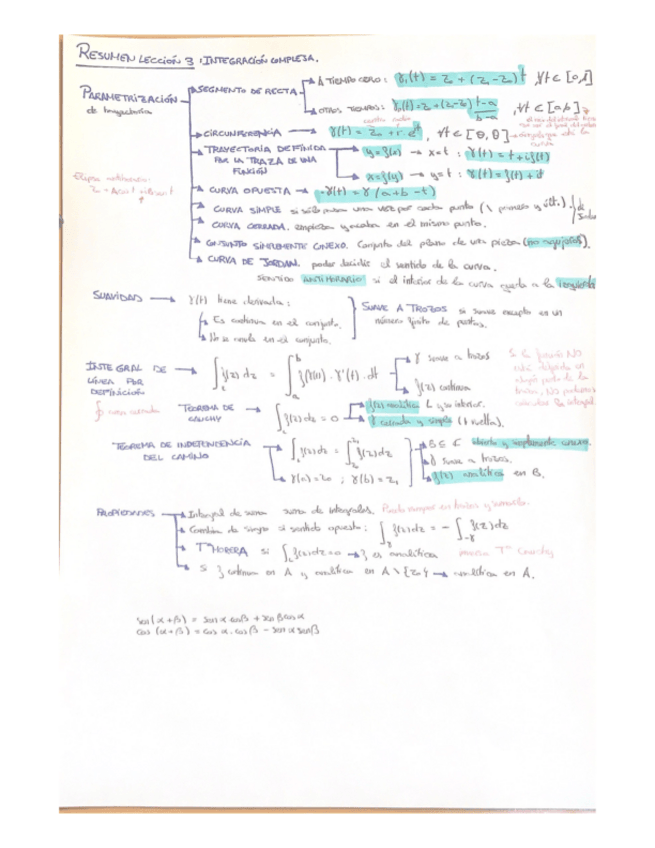 RESUMEN LECCIÓN 3: INTEGRACIÓN COMPLEJA.
PARAMETRIZACIÓN de trayectoria
SEGMENTO DE RECTA
A TIEMPO CERO: γ₁(t) = z₀ + (z₁-z₀) t, ∀t ∈ [0,1]
OTROS TIEMPOS: γ₁(t) = z₀ + (z₁-z₀) (t-a)/(b-a), ∀t ∈ [a,b]
centro radio
CIRCUNFERENCIA → γ(t) = z₀ + r e^it, ∀t ∈ [θ, θ]
curva
TRAYECTORIA DEFINIDA POR LA TRAZA DE UNA FUNCIÓN
y=f(x) → x=t : γ(t) = t + i f(t)
x=f(y) → y=t : γ(t) = f(t) + it
Elipse
CURVA OPUESTA → -γ(t) = γ(a+b-t)
CURVA SIMPLE si sólo pasa una vez por cada punto (\ primero y últ.)
CURVA CERRADA. empieza y acaba en el mismo punto.
CONJUNTO SIMPLEMENTE CONEXO. Conjunto del plano de una pieza (no agujeros).
CURVA DE JORDAN. poder decidir el sentido de la curva.
SENTIDO ANTIHORARIO si el interior de la curva queda a la izquierda
SUAVIDAD → γ(t) tiene derivada:
Es continua en el conjunto.
No se anula en el conjunto.
SUAVE A TROZOS si suave excepto en un número finito de puntos.
INTEGRAL DE LÍNEA POR DEFINICIÓN
∫_γ f(z) dz = ∫_a^b f(γ(t)) · γ'(t) · dt
γ suave a trozos
f(z) continua
Si la función NO está definida en algún punto de la traza, NO podemos calcular la integral.
∮ curva cerrada
TEOREMA DE CAUCHY → ∫_γ f(z) dz = 0
f(z) analítica γ y su interior.
γ cerrada y simple (1 vuelta).
TEOREMA DE INDEPENDENCIA DEL CAMINO
∫_γ f(z) dz = ∫_z₀^z₁ f(z) dz
γ(a) = z₀ ; γ(b) = z₁
B ⊆ ℂ abierto y simplemente conexo.
γ suave a trozos.
f(z) analítica en B.
PROPIEDADES
Integral de suma suma de integrales. Puedo romper en trozos y sumarlo.
Cambia de signo si sentido opuesto: ∫_γ f(z) dz = - ∫_-γ f(z) dz
Tª MORERA si ∫_γ f(z) dz = 0 → f es analítica inversa Tª Cauchy
Si f continua en A y analítica en A \ {z₀} → analítica en A.
sen(α+β) = sen α cos β + sen β cos α
cos (α+β) = cos α · cos β - sen α sen β